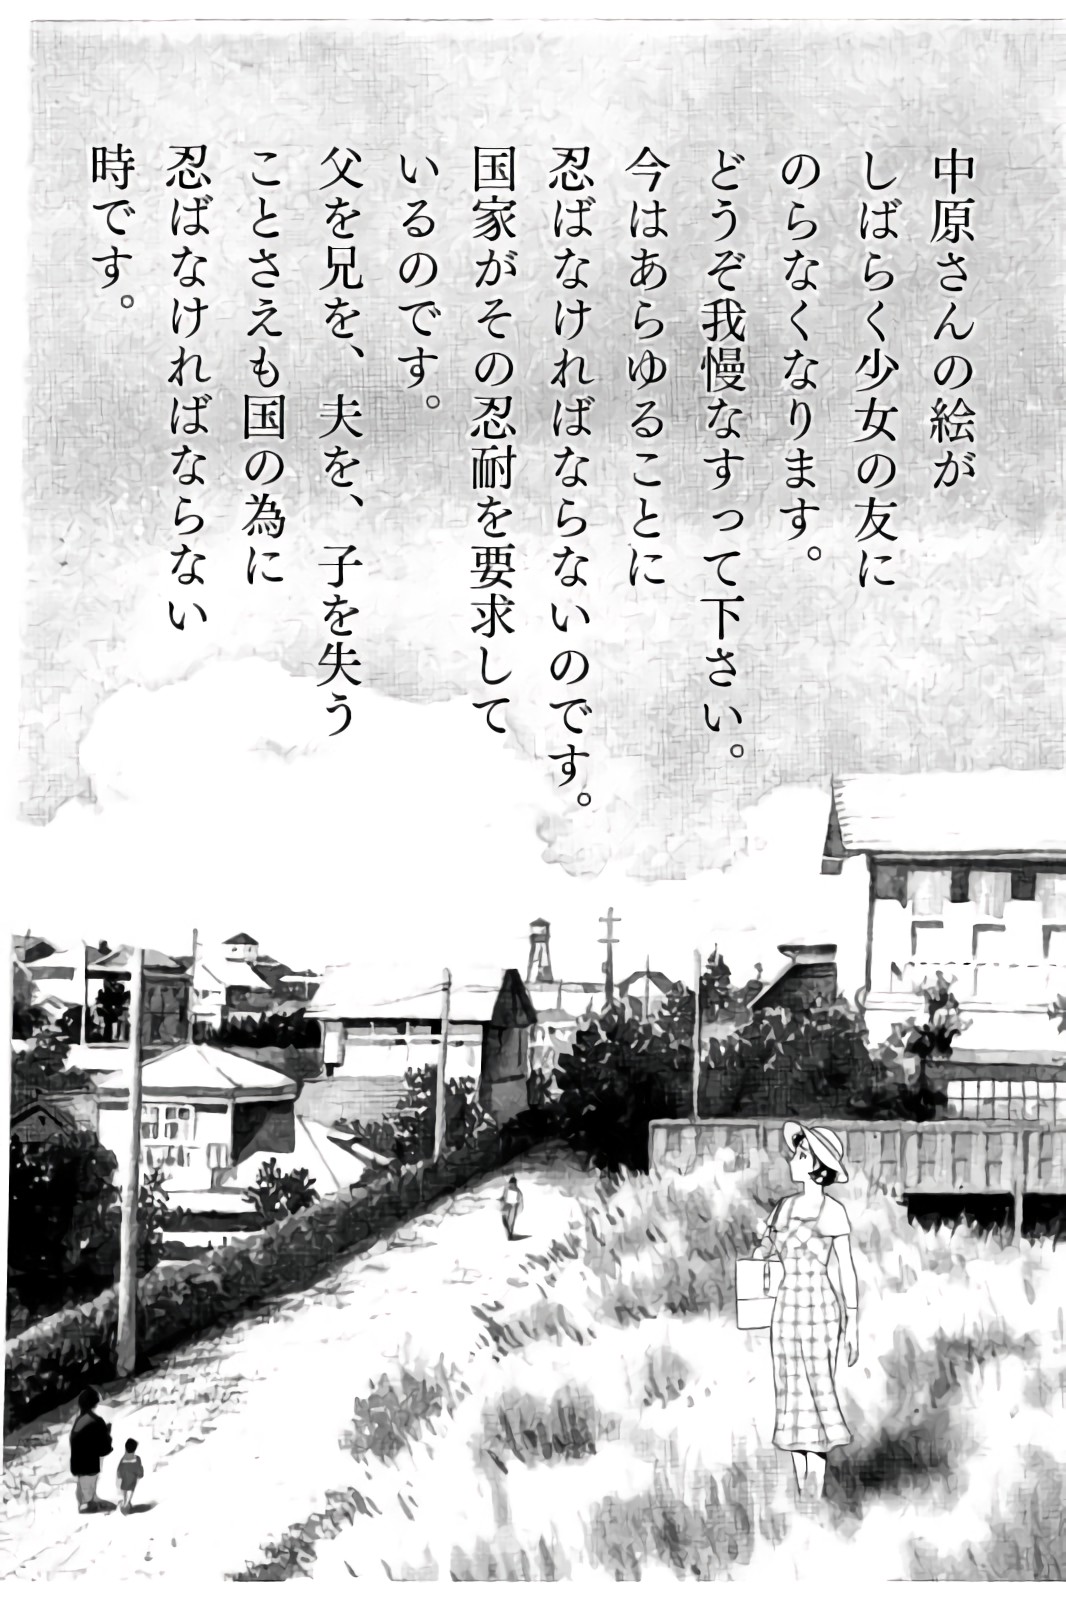 中原さんの絵が
しばらく少女の友に
のらなくなります。
どうぞ我慢なすって下さい。
今はあらゆることに
忍ばなければならないのです。
国家がその忍耐を要求して
いるのです。
父を兄を、夫を、子を失う
ことさえも国の為に
忍ばなければならない
時です。